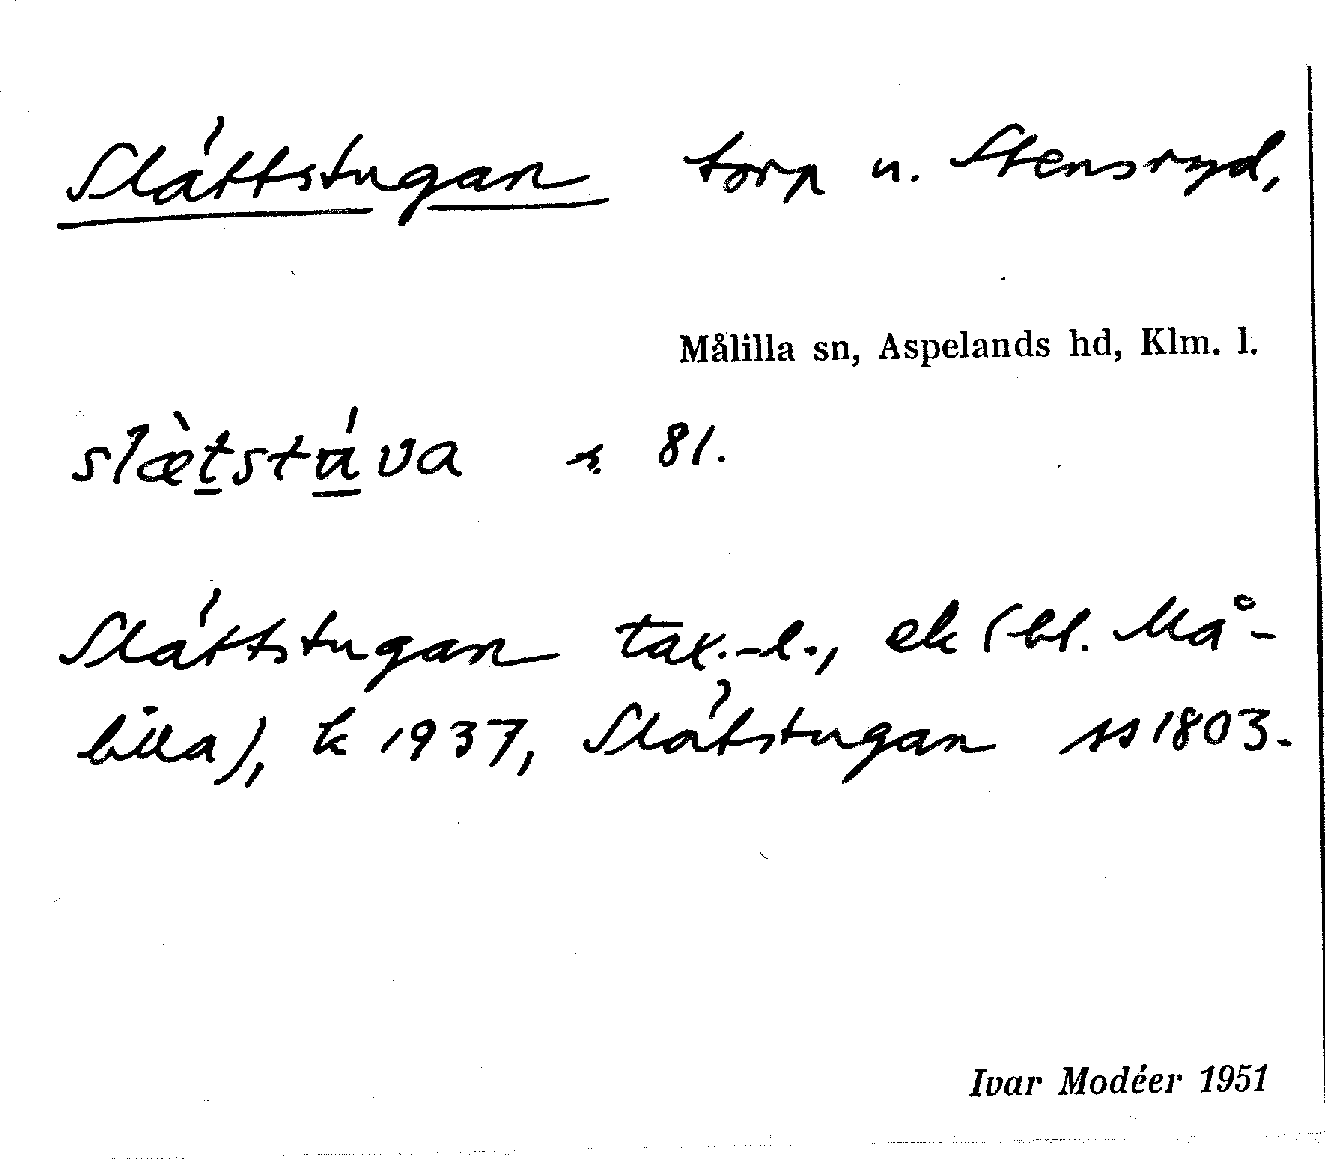 Slättstugan torp u. Stensryd,
Målilla sn, Aspelands hd, Klm. l.
slæ̀tstu̇́va 81.
Slättstugan tax.-l., ek (bl. Må-
lilla), k 1937, Slätstugan ss 1803.
Ivar Modéer 1951